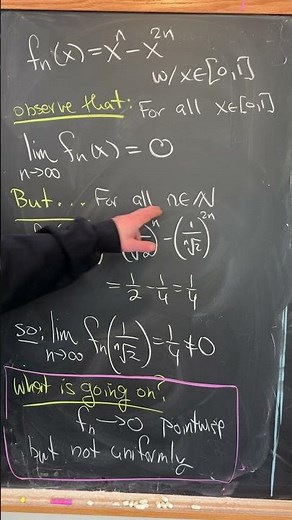 fn(x) = x^n - x^2n
w/ x∈[0,1]
observe that: For all x∈[0,1]
lim n→∞ fn(x) = 0
But... For all n∈ℕ
)^n - (1/ⁿ√2)^2n
= 1/2 - 1/4 = 1/4
so: lim n→∞ fn(1/ⁿ√2) = 1/4 ≠ 0
What is going on?
fn → 0 pointwise
but not uniformly